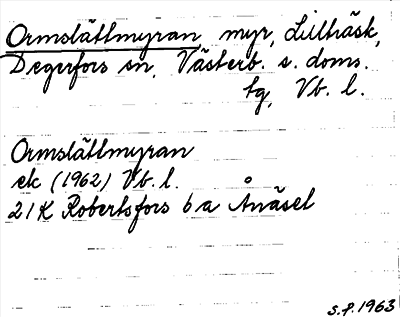 Ormslåttmyran, myr, Lillträsk,
Degerfors sn, Västerb. s. doms.
tg, Vb. l.
Ormslåttmyran
ek (1962) Vb. l.
21K Robertsfors 6a Ånäset
S.P. 1963